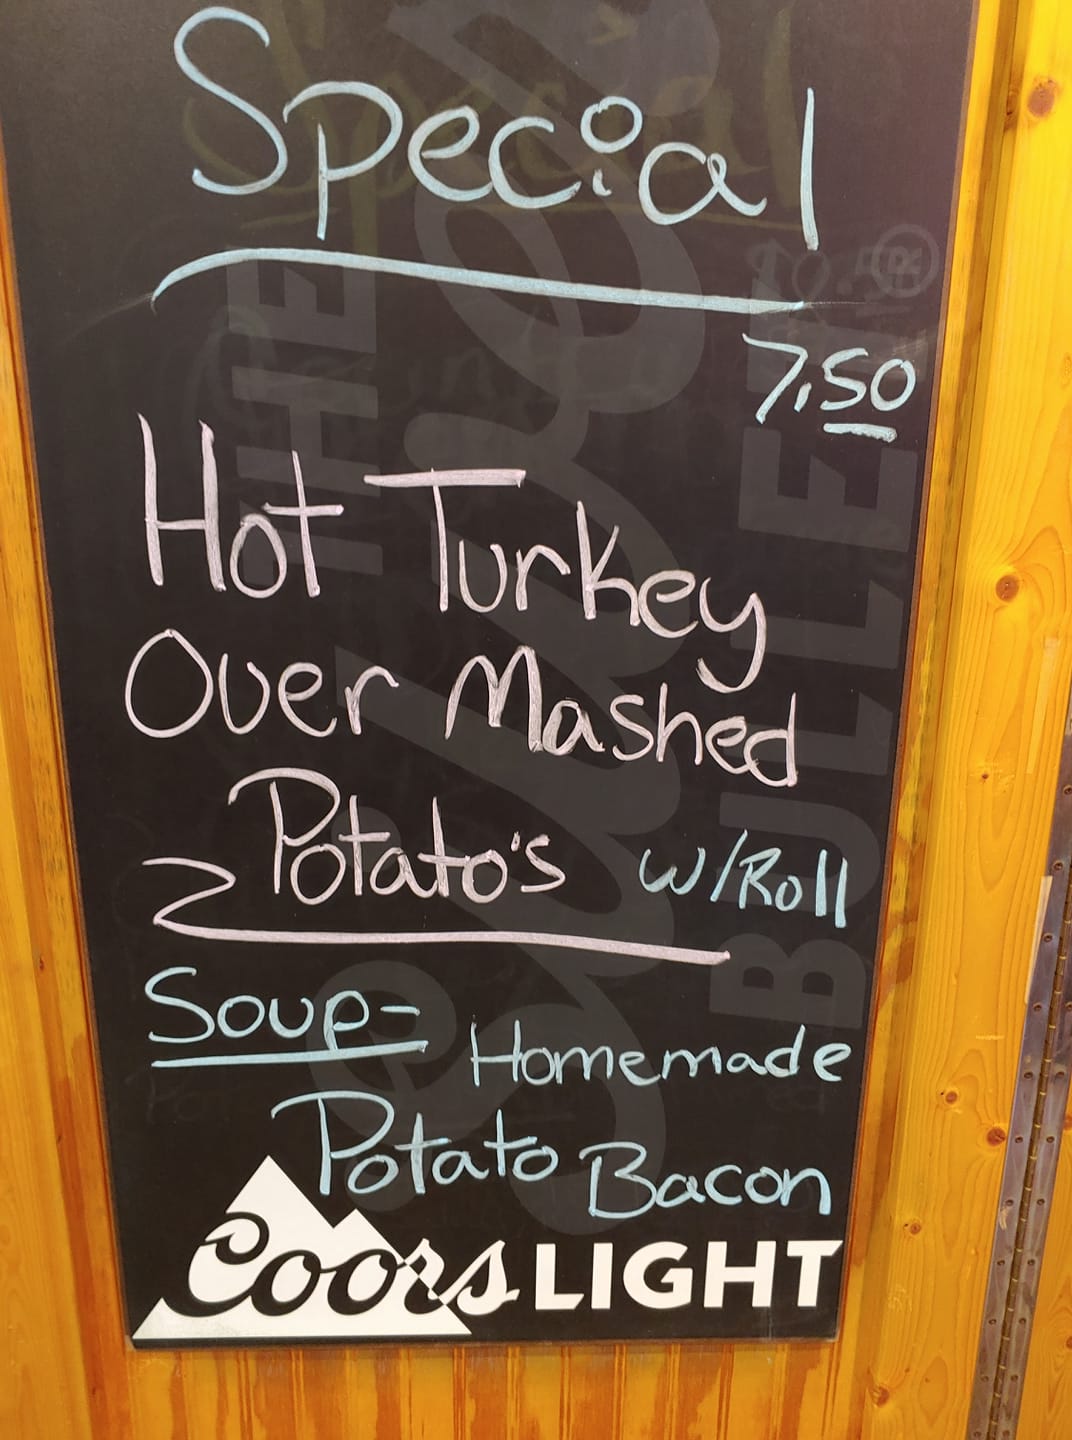 Special
7.50
Hot Turkey
Over Mashed
Potato's w/Roll
Soup-
Homemade
Potato Bacon
Coors LIGHT
THE
Silver
BULLET
®